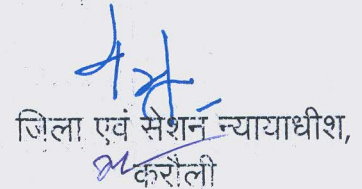 जिला एवं सेशन न्यायाधीश,
करौली